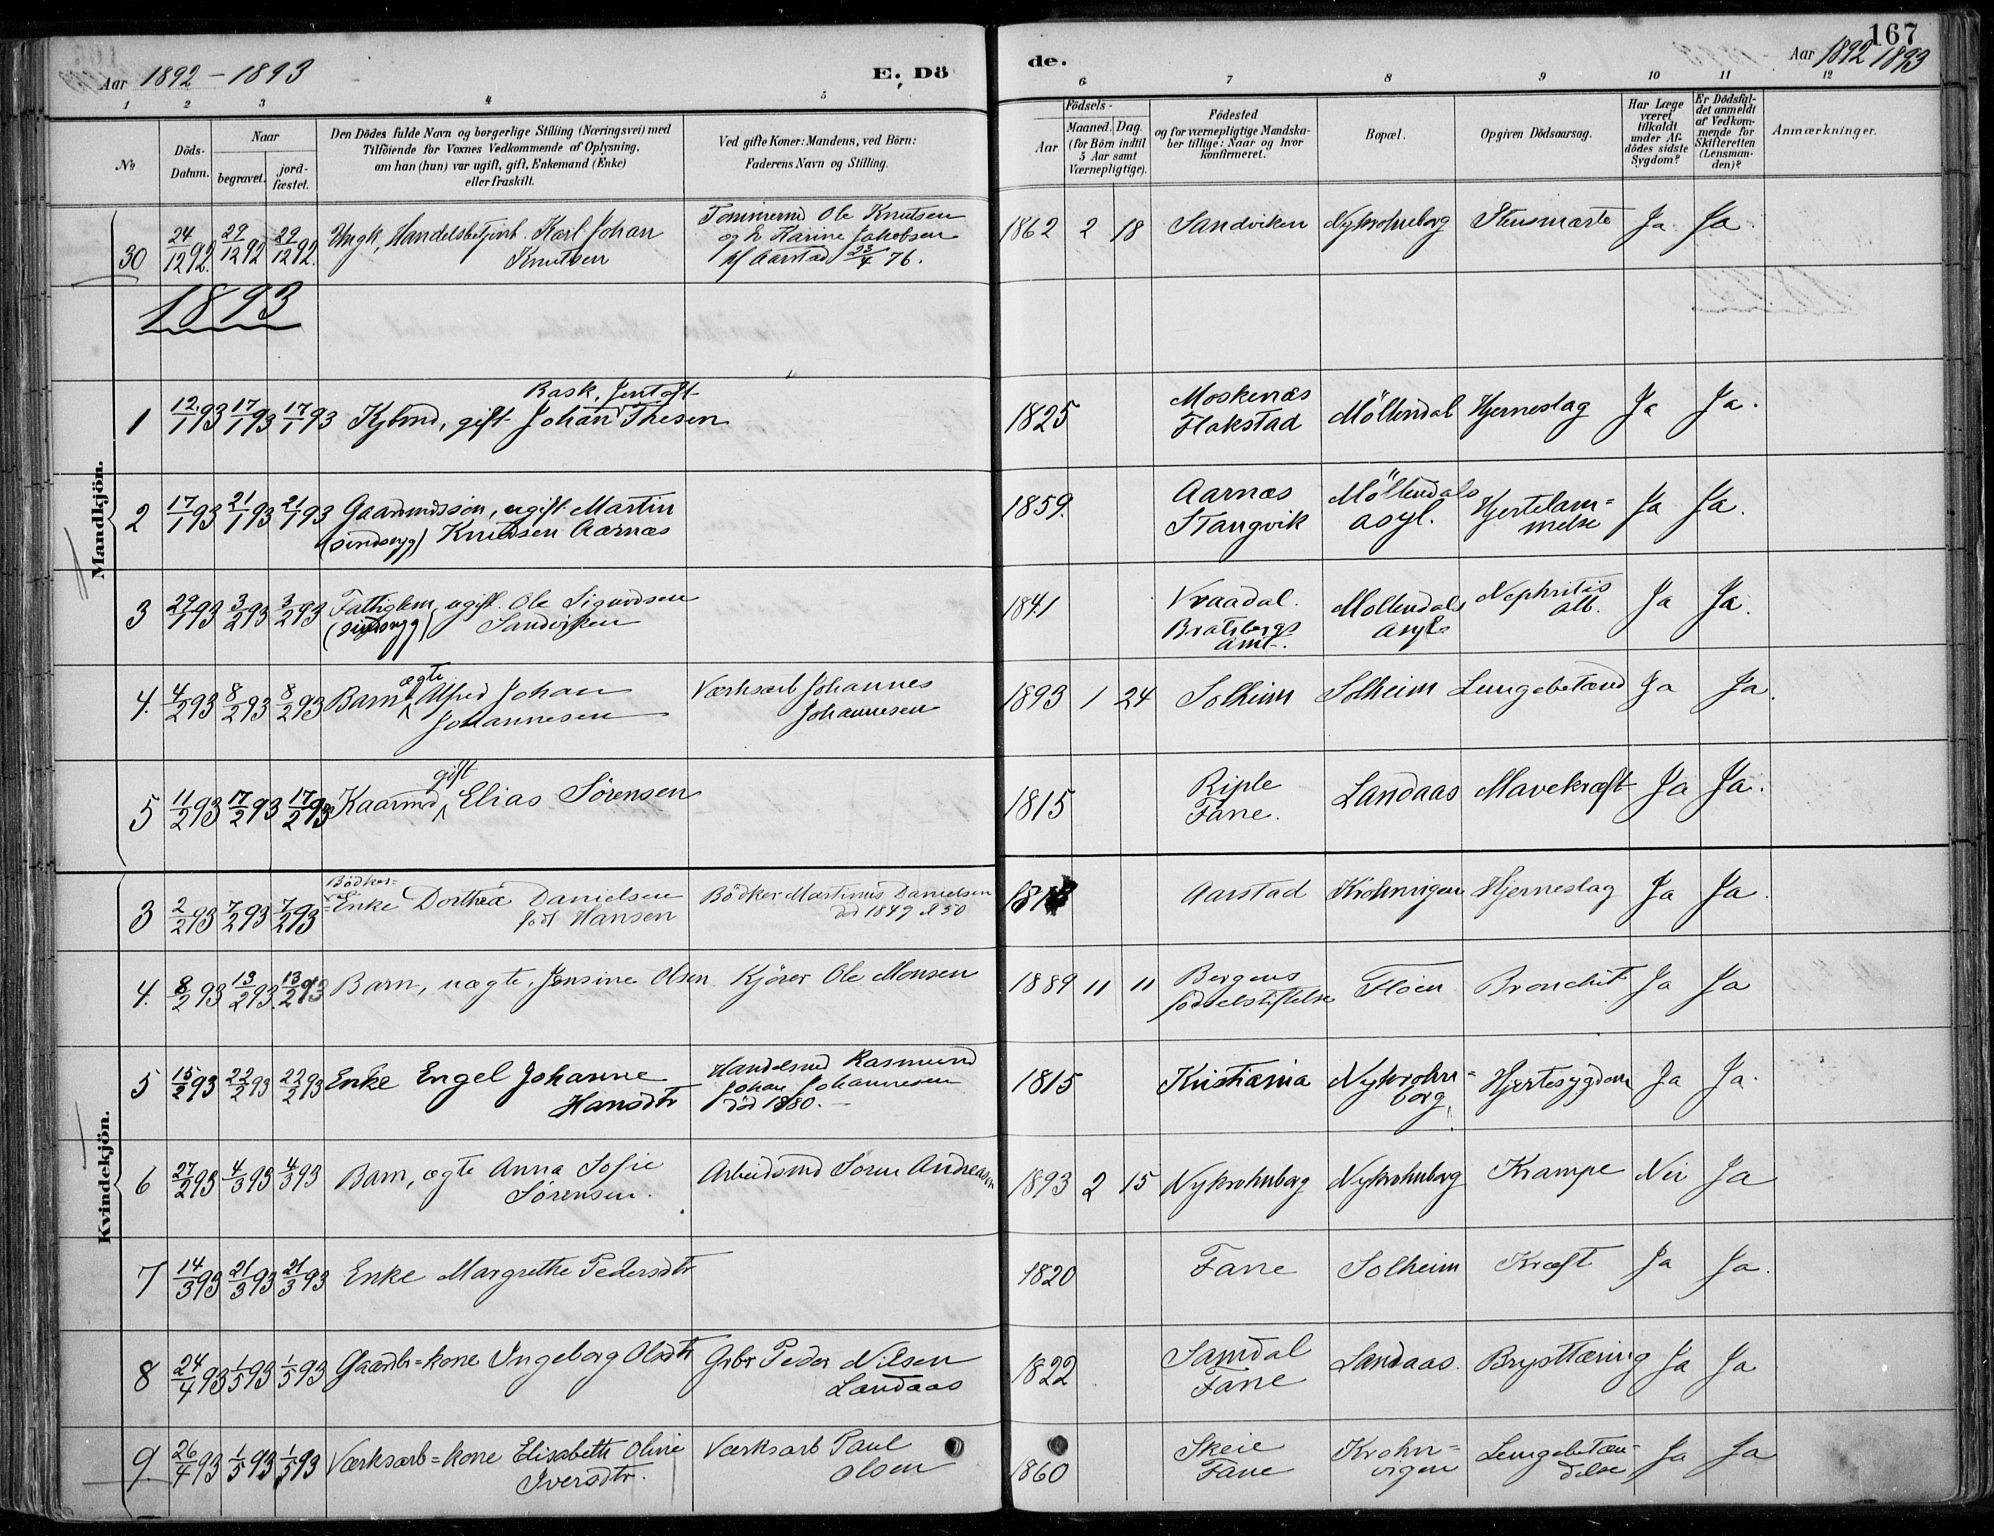 167
Aar 1892-1893
E. Dö
de.
Aar 1892 1893
1 2 3 4 5 6 7 8 9 10 11 12
No
Döds-Datum.
Naar
begravet.
jord-fæstet.
Den Dödes fulde Navn og borgerlige Stilling (Næringsvei) med
Tilföiende for Voxnes Vedkommende af Oplysning,
om han (hun) var ugift, gift, Enkemand (Enke)
eller fraskilt.
Ved gifte Koner: Mandens, ved Börn:
Faderens Navn og Stilling.
Födsels-
Aar
Maaned. Dag.
(for Börn indtil
5 Aar samt
Værnepligtige).
Födested
og for værnepligtige Mandska-
ber tillige: Naar og hvor
konfirmeret.
Bopæl.
Opgiven Dödsaarsag.
Har Læge
været
tilkaldt
under Af-
dödes sidste
Sygdom?
Er Dödsfal-
det anmeldt
af Vedkom-
mende for
Skifteretten
(Lensman-
den)?
Anmærkninger.
Mandkjön.
30 24/12 92. 29/12 92 29/12 92. Ungk, Handelsbetjent. Karl Johan
Knutsen
Tømmermd Ole Knutsen
og h. Karine Jakobsen
Aarstad 23/4 76.
1862 2 18 Sandviken Nykrohneborg Ja. Ja.
1893
1 12/1 93 17/1 93 17/1 93 Kjbmd, gift Johan Thesen
Rask. Jentoft
1825 Moskenæs
Flakstad Möllendal Hjerneslag Ja Ja.
2 17/1 93 21/1 93 21/1 93 Gaardmdssøn, ugift Martin
(sindssyg) Knudsen Aarnæs
1859. Aarnæs
Stangvik Möllendals
asyl. Hjertelam=
melse Ja Ja.
3 29/1 93 3/2 93 3/2 93 Fattiglem ugift. Ole Sigurdsen
(sindssyg) Sandviken
1841 Vraadal.
Bratsbergs
amt. Möllendals
asyl Nephritis
alb. Ja Ja.
4. 4/2 93 8/2 93 8/2 93 Barn ægte Alfred Johan
Johannesen
Værksarb Johannes
Johannesen
1893 1 24 Solheim Solheim Lungebetænd Ja Ja.
5 11/2 93 17/2 93 17/2 93 Kaarmd gift Elias Sørensen
1815 Riple
Fane. Landaas Mavekræft Ja Ja.
Kvindekjön.
3 2/2 93 7/2 93 7/2 93 Bödker=
=Enke Dorthea Danielsen
født Hansen
Bödker Martinus Danielsen
död 1849 el 50
Aarstad Krohnvigen Hjerneslag Ja Ja.
4. 8/2 93 13/2 93. 13/2 93 Barn, uægte, Jensine Olsen
Kjörer Ole Monsen
1889 11 11 Bergens
födselsstiftelse Flöien Bronchit Ja Ja
5 15/2 93 22/2 93 22/2 93 Enke Engel Johanne
Hansdtr
Handelsmd Rasmund
Johan Johannesen
död 1880.
1815 Kristiania Nykrohn=
borg Hjertesygdom Ja Ja.
6 27/2 93 4/3 93 4/3 93 Barn, ægte Anna Sofie
Sørensen.
Arbeidsmd Sören Andreasen
1893 2 15 Nykrohnborg Nykrohnborg Krampe Nei Ja
7 14/3 93 21/3 93 21/3 93 Enke Margrethe Pedersdtr
1820 Fane Solheim Kræft Ja Ja.
8 24/4 93 1/5 93 1/5 93 Gaardbr=kone Ingeborg Olsdtr
Grbr Peder Nilsen
Landaas
1822 Samdal
Fane Landaas. Brysttæring Ja Ja
9. 26/4 93 1/5 93 1/5 93 Værksarb=kone Elisabeth Oline
Iversdtr.
Værksarb Paul
Olsen
1860 Skeie
Fane Krohn=
vigen Lungebetæn-
delse Ja Ja